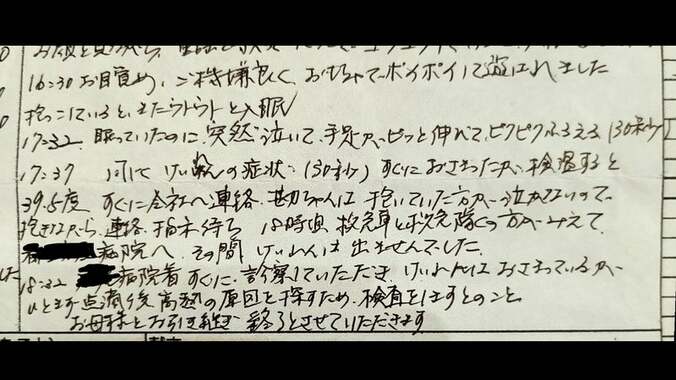 16:30 お目覚め、ご機嫌良く、おもちゃでポイポイして遊ばれました
抱っこしているとまたウトウトと入眠
17:32 眠っていたのに突然泣いて、手足がピッと伸びて、ピクピクふるえる(30秒)
17:37 同じくけいれんの症状(30秒)すぐにおさまったが、検温すると
39.5度 すぐに会社へ連絡、ちゃんは抱いていた方が泣かないので、
抱きながら、連絡、指示待ち 18時頃 救急車と救急隊の方がみえて
病院へ その間けいれんは出ませんでした。
18:32 病院着 すぐに診察していただき けいれんはおさまっているが、
ひとまず点滴後 高熱の原因を探すため、検査をしますとのこと
お母様とお引き継ぎ 終了とさせていただきます